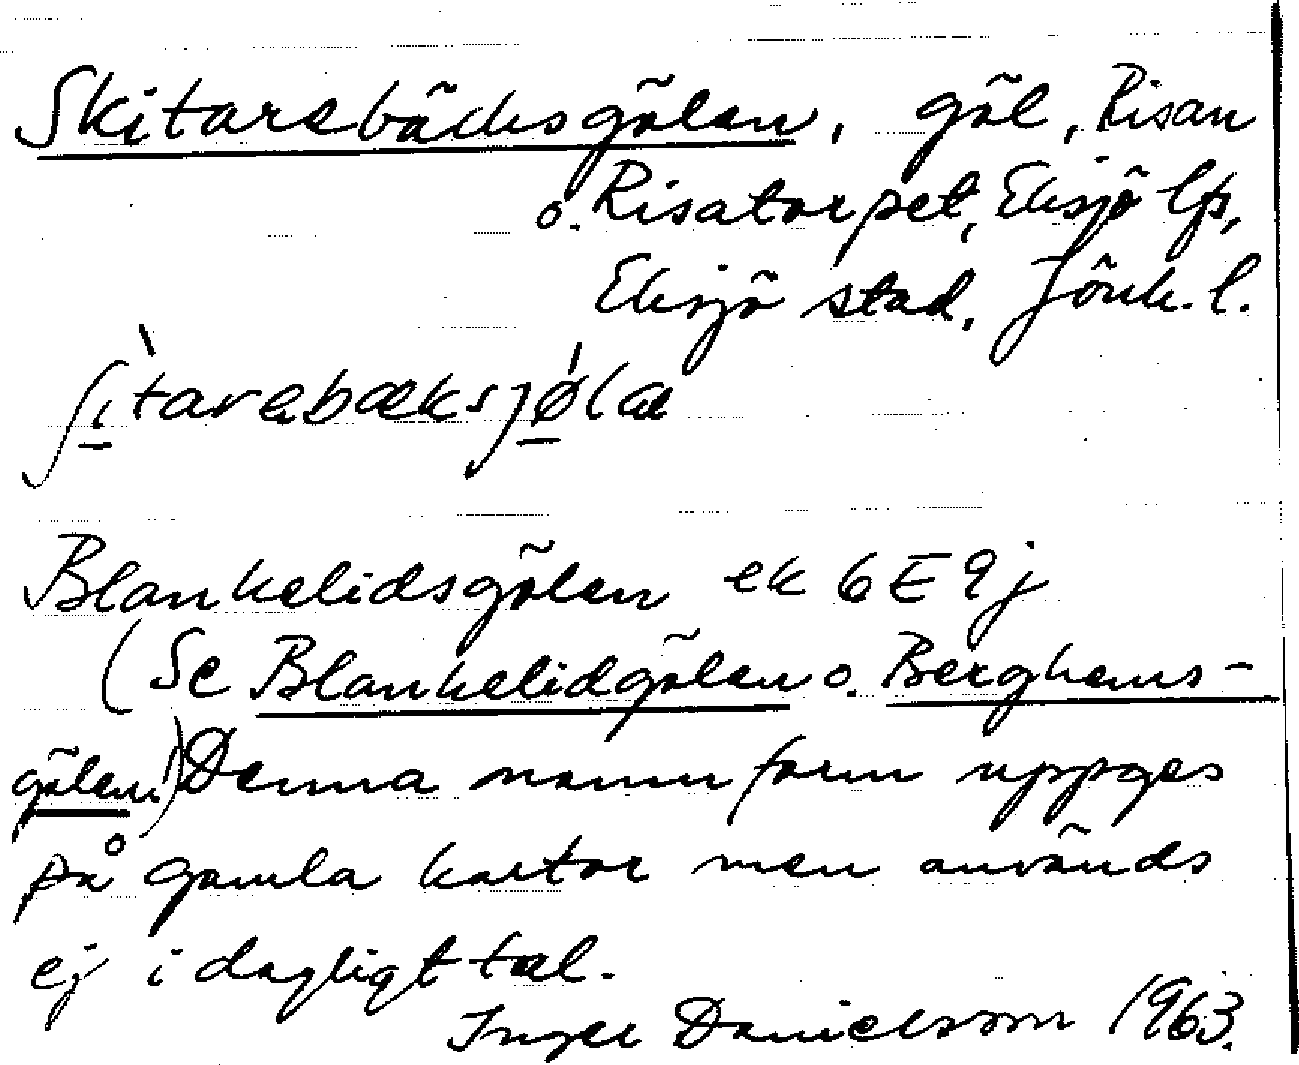 Skitarebäcksgölen, göl, Risan
o. Risatorpet, Eksjö lfs,
Eksjö stad, Jönk. l.
ʃı̀tarebæksjǿlæ
Blankelidsgölen ek 6E9j
(Se Blankelidgölen o. Berghems-
gölen.) Denna namnform uppges
på gamla kartor men används
ej i dagligt tal.
Inger Danielsson 1963.